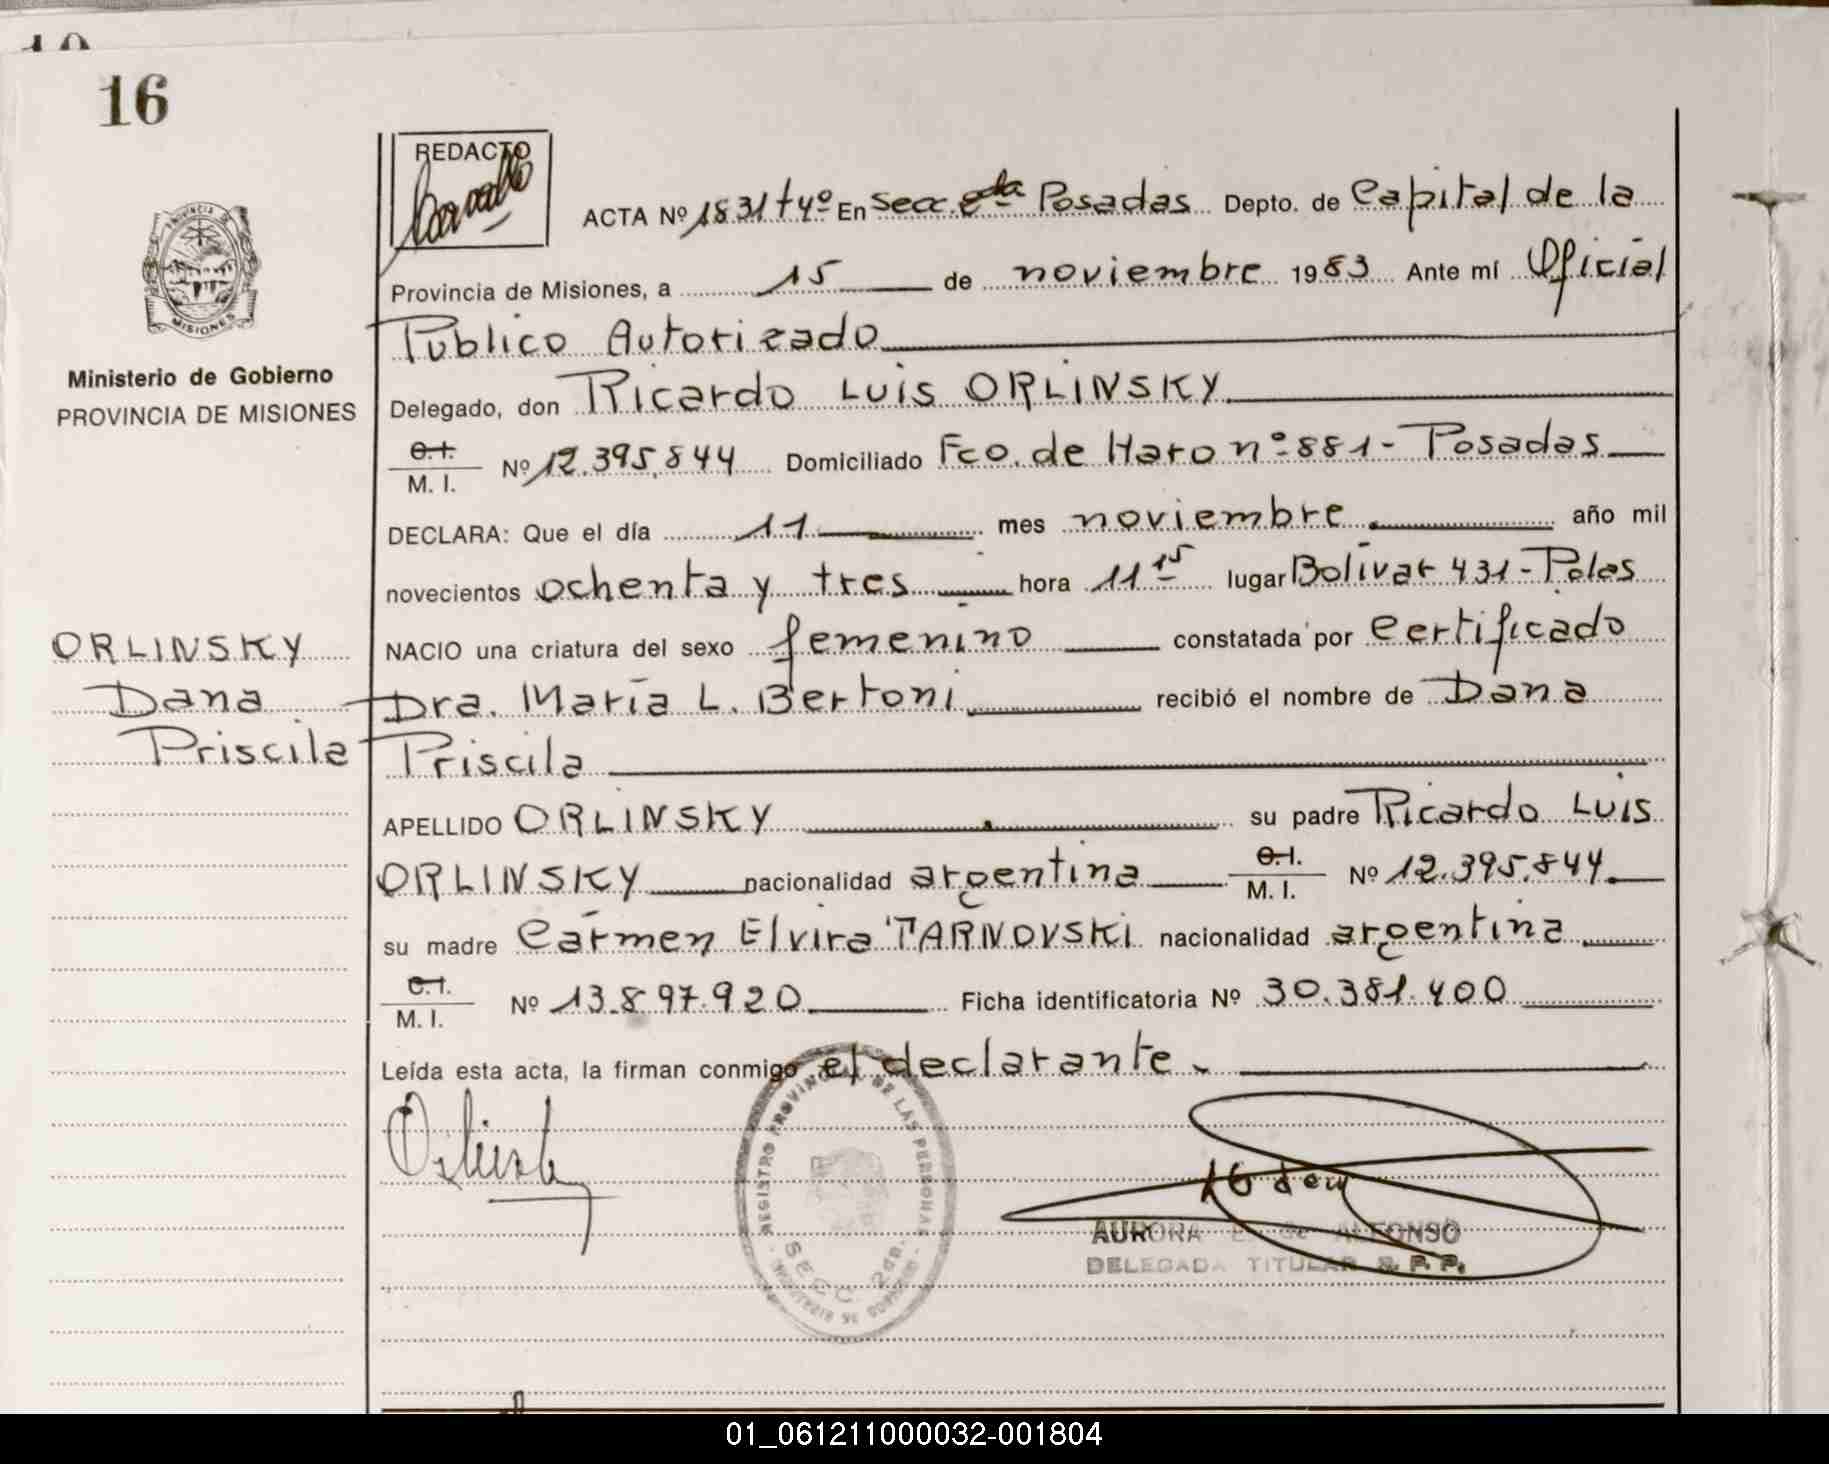 16
PROVINCIA DE
MISIONES
Ministerio de Gobierno
PROVINCIA DE MISIONES
ORLINSKY
Dana
Priscila
REDACTO
ACTA Nº 1831 tº 4º En secc. 2da Posadas Depto. de Capital de la
Provincia de Misiones, a 15 de noviembre 1983 Ante mí Oficial
Público Autorizado
Delegado, don Ricardo Luis ORLINSKY
C.I.
M. I. Nº 12.395.844 Domiciliado Fco. de Haro nº 881 - Posadas
DECLARA: Que el día 11 mes noviembre año mil
novecientos ochenta y tres hora 11 15 lugar Bolívar 431 - Pdas
NACIO una criatura del sexo femenino constatada por certificado
Dra. María L. Bertoni recibió el nombre de Dana
Priscila
APELLIDO ORLINSKY su padre Ricardo Luis
ORLINSKY nacionalidad argentina C.I. M. I. Nº 12.395.844
su madre Cármen Elvira TARNOVSKI nacionalidad argentina
C.I.
M. I. Nº 13.897.920 Ficha identificatoria Nº 30.381.400
Leída esta acta, la firman conmigo el declarante.
REGISTRO PROVINCIAL DE LAS PERSONAS
SECC. 2da.
AURORA E. de ALFONSO
DELEGADA TITULAR R. P. P.
01_061211000032-001804